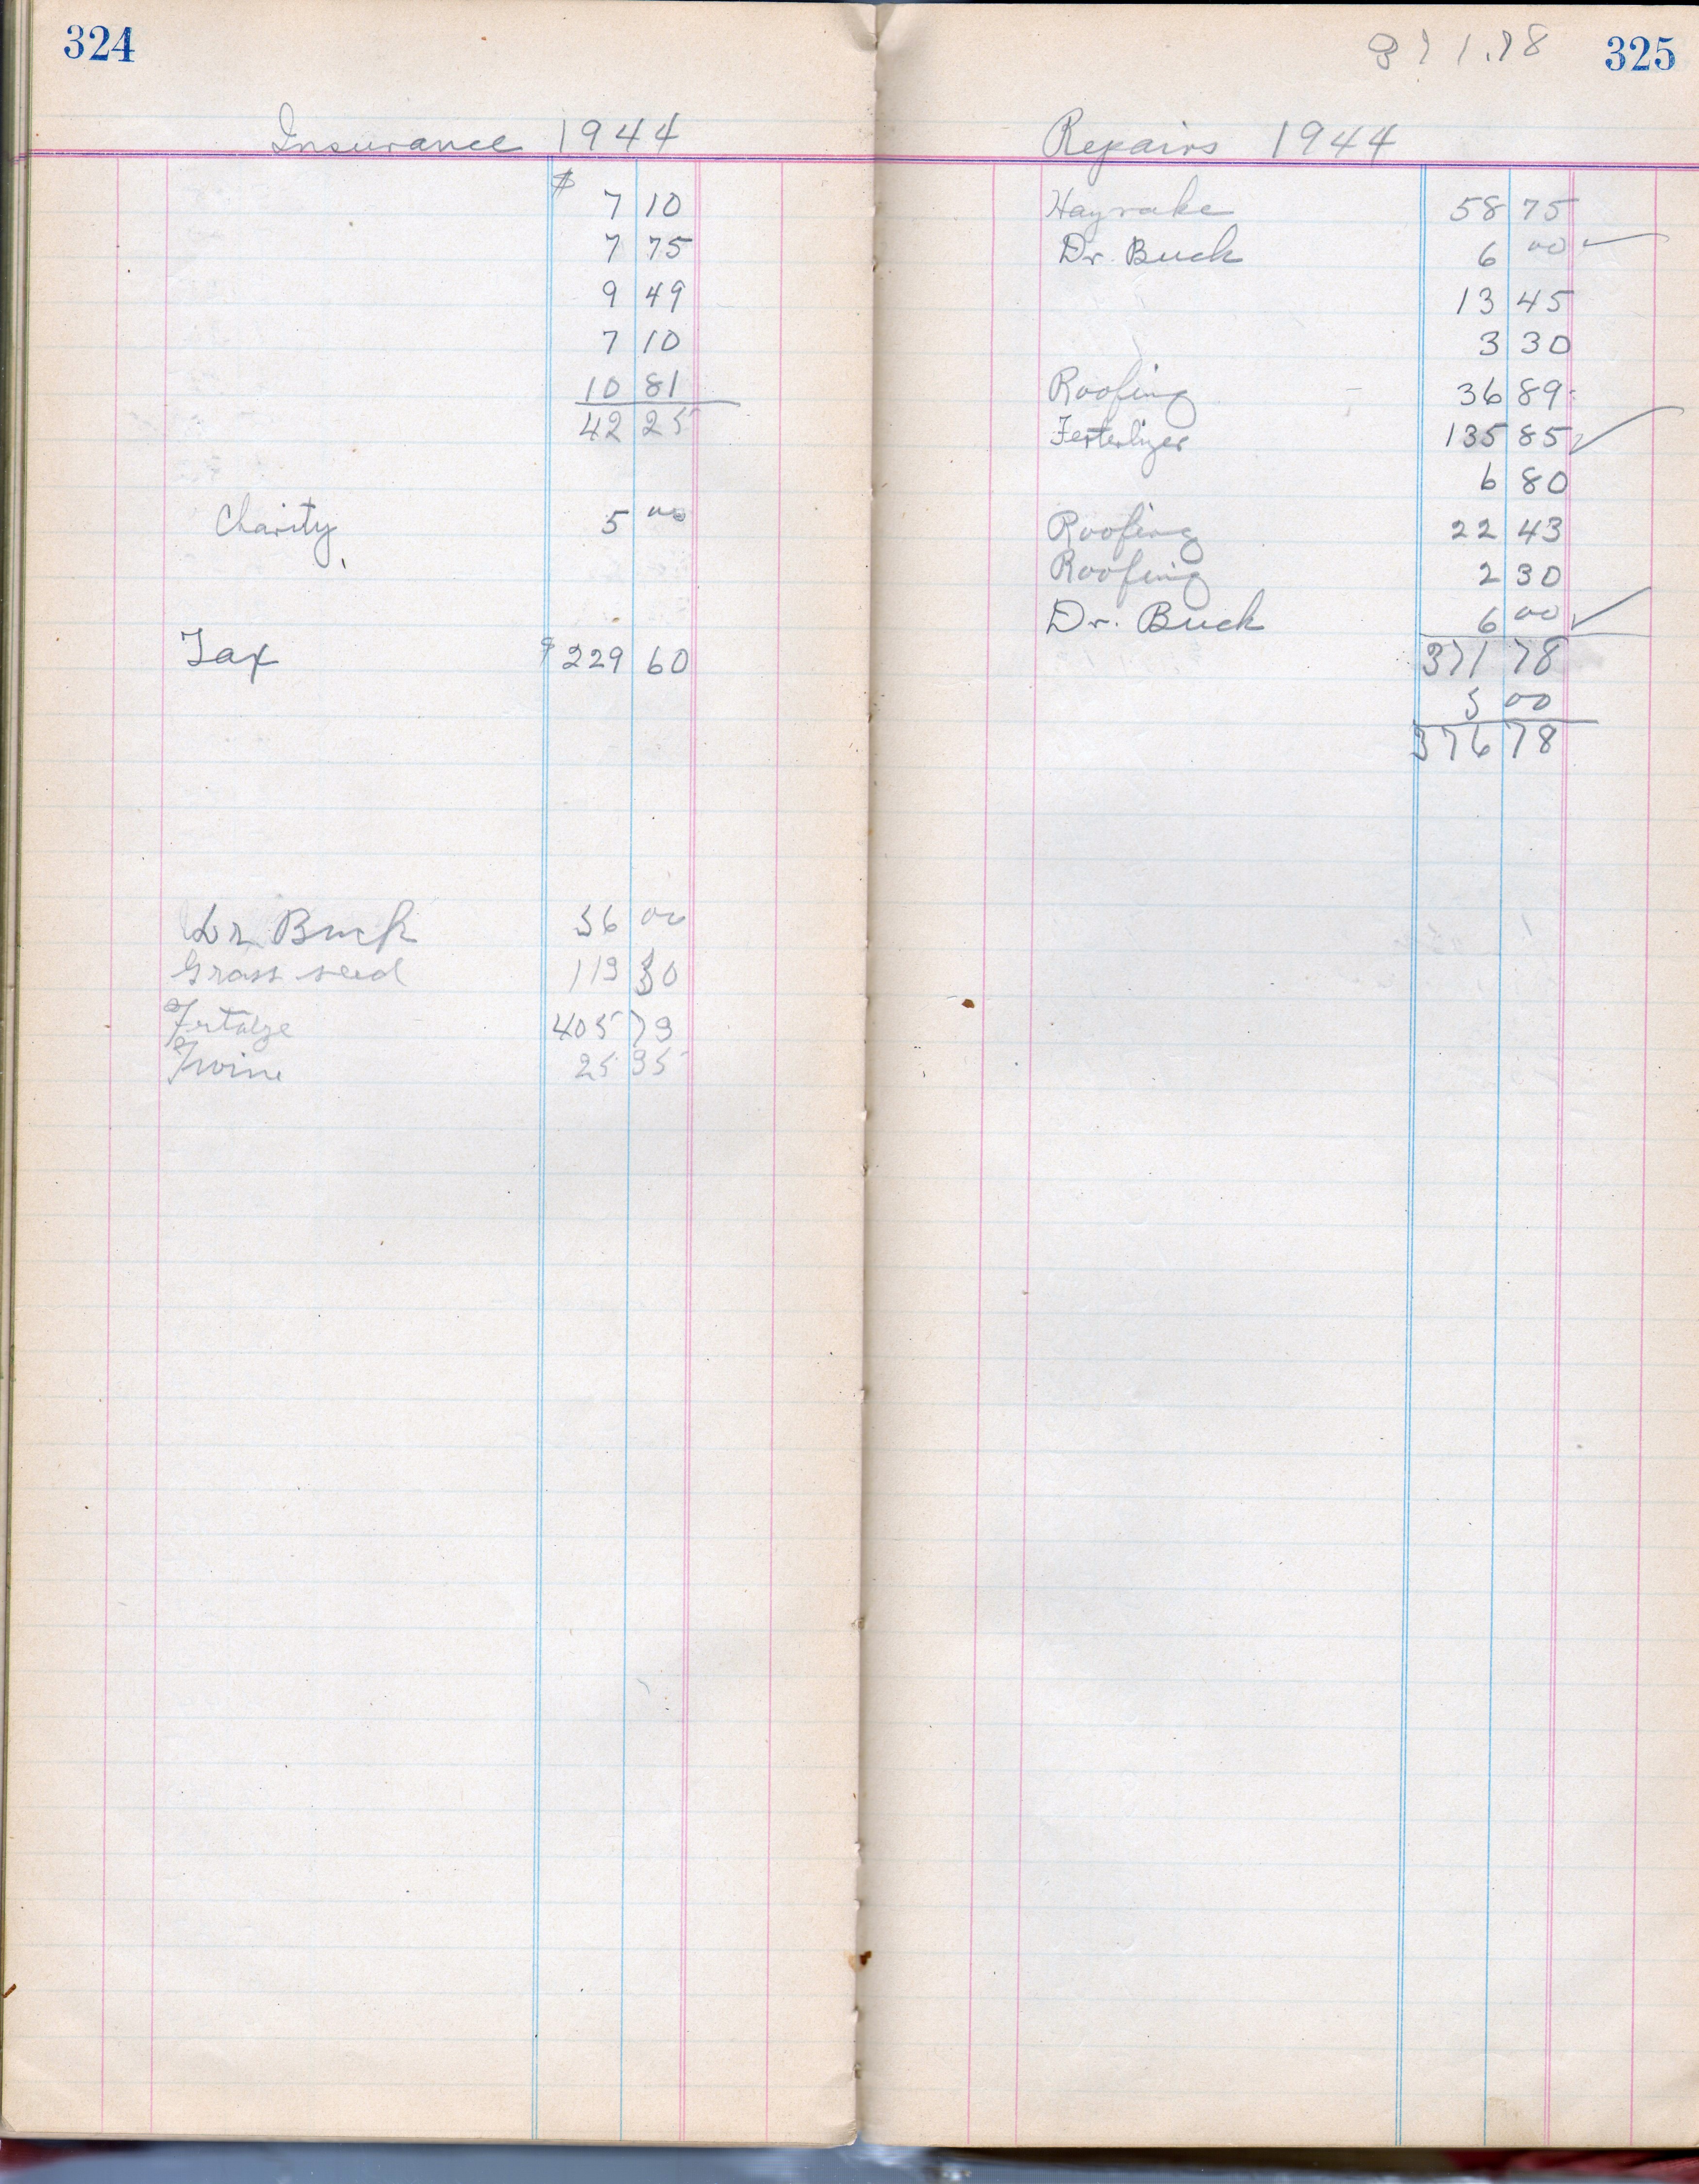 324
Insurance 1944
$ 7 10
7 75
9 49
7 10
10 81
42 25
Charity 5 00
Tax $ 229 60
Dr Buck 36 00
Grass seed 119 30
405 79
Twine 25 95
371.78 325
Repairs 1944
Hayrake 58 75
Dr. Buck 6 00 ✓
13 45
3 30
Roofing 36 89
Ferterlizer 135 85 ✓
6 80
Roofing 22 43
Roofing 2 30
Dr. Buck 6 00 ✓
371 78
5 00
376 78